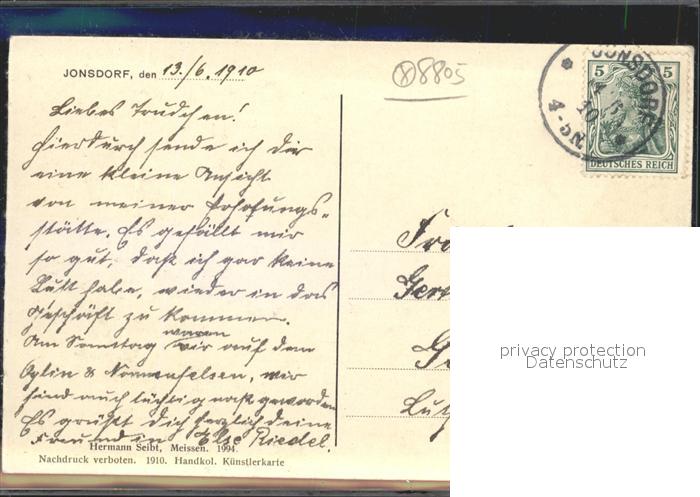 JONSDORF, den 13./6. 1910
8805
JONSDORF
4-5N.
5 5
DEUTSCHES REICH
Liebes Trudchen!
Hierdurch sende ich dir
eine kleine Ansicht
von meiner Erholungs-
stätte. Es gefällt mir
so gut, daß ich gar keine
Lust habe, wieder in das
Geschäft zu kommen.
Am Sonntag waren
wir auf dem
Oybin & Nonnenfelsen, wir
sind auch tüchtig naß geworden
Es grüßt dich herzlich deine
Freundin Else Riedel.
privacy protection
Datenschutz
Hermann Seibt, Meissen. 1994.
Nachdruck verboten. 1910. Handkol. Künstlerkarte